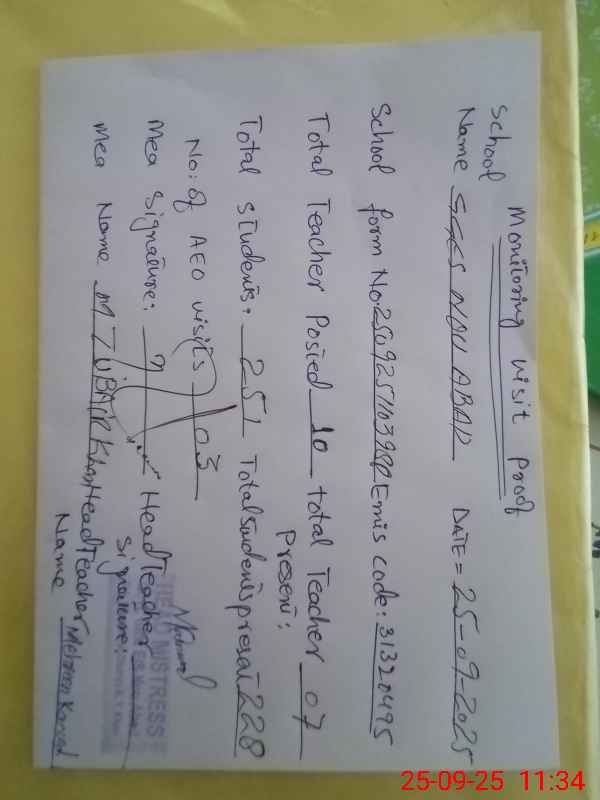 Monitoring visit proof
School
Name GGES NOU ABAD DATE = 25-09-2025
School form No: Emis code: 31320495
Total Teacher Posted 10 total Teacher 07
Present:
Total students: 251 Total students present 228
No: of AEO visits 03
Mea Signature: Head Teacher
Signature:
Mea Name M ZUBAIR Khan Head Teacher
Name
HEAD MISTRESS
25-09-25 11:34